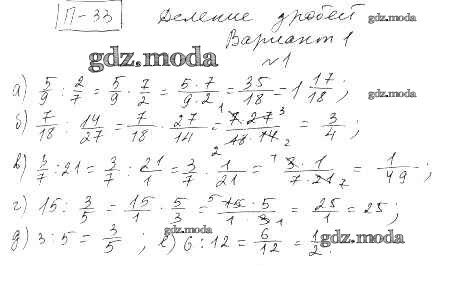 П-33 Деление дробей gdz.moda
Вариант 1
gdz.moda
№1
а) 5/9 : 2/7 = 5/9 · 7/2 = 5·7/9·2 = 35/18 = 1 17/18 ; gdz.moda
б) 7/18 : 14/27 = 7/18 · 27/14 = 7·27/18·14 = 3/4 ;
в) 3/7 : 21 = 3/7 : 21/1 = 3/7 · 1/21 = 3·1/7·21 = 1/49 ;
г) 15 : 3/5 = 15/1 · 5/3 = 15·5/1·3 = 25/1 = 25 ;
gdz.moda
д) 3 : 5 = 3/5 ; е) 6 : 12 = 6/12 = 1/2 . gdz.moda